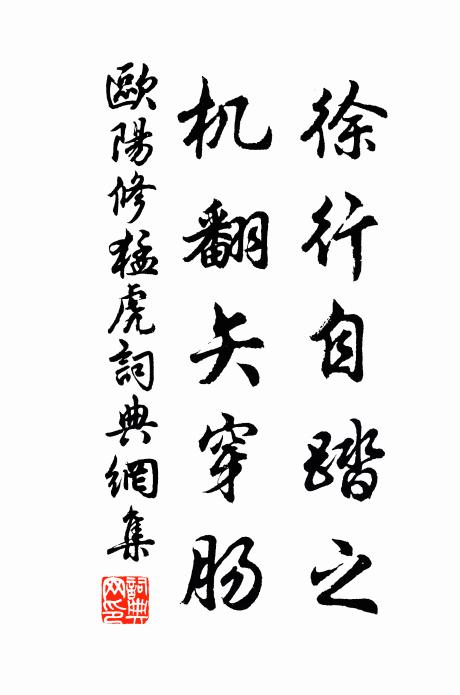 徐行自踏之
机翻矢穿肠
歐陽修猛虎詞典網集
詞典网印